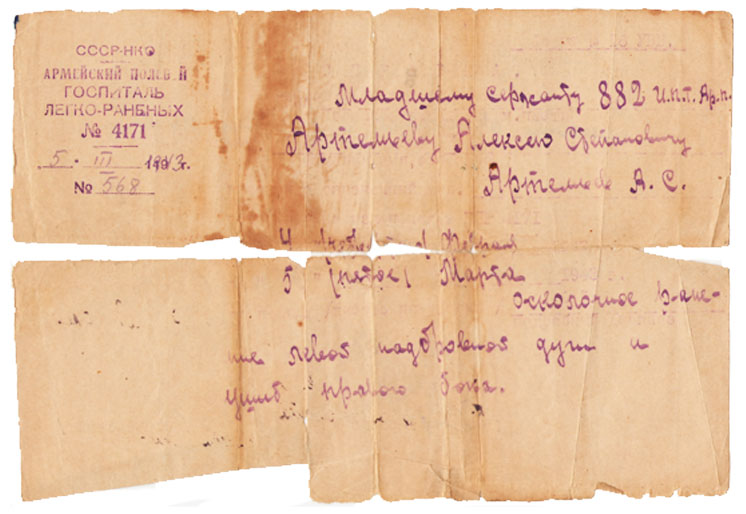 СССР-НКО
АРМЕЙСКИЙ ПОЛЕВОЙ
ГОСПИТАЛЬ
ЛЕГКО-РАНЕНЫХ
№ 4171
5 - III 1943г.
№ 568
младшему сержанту 882 и.п.т. Ар.п.
Артемьеву Алексею Степановичу
Артемьев А. С.
4 Февраля
5 (пятое) Марта
осколочное ране-
ние левой надбровной дуги и
ушиб правого бока.